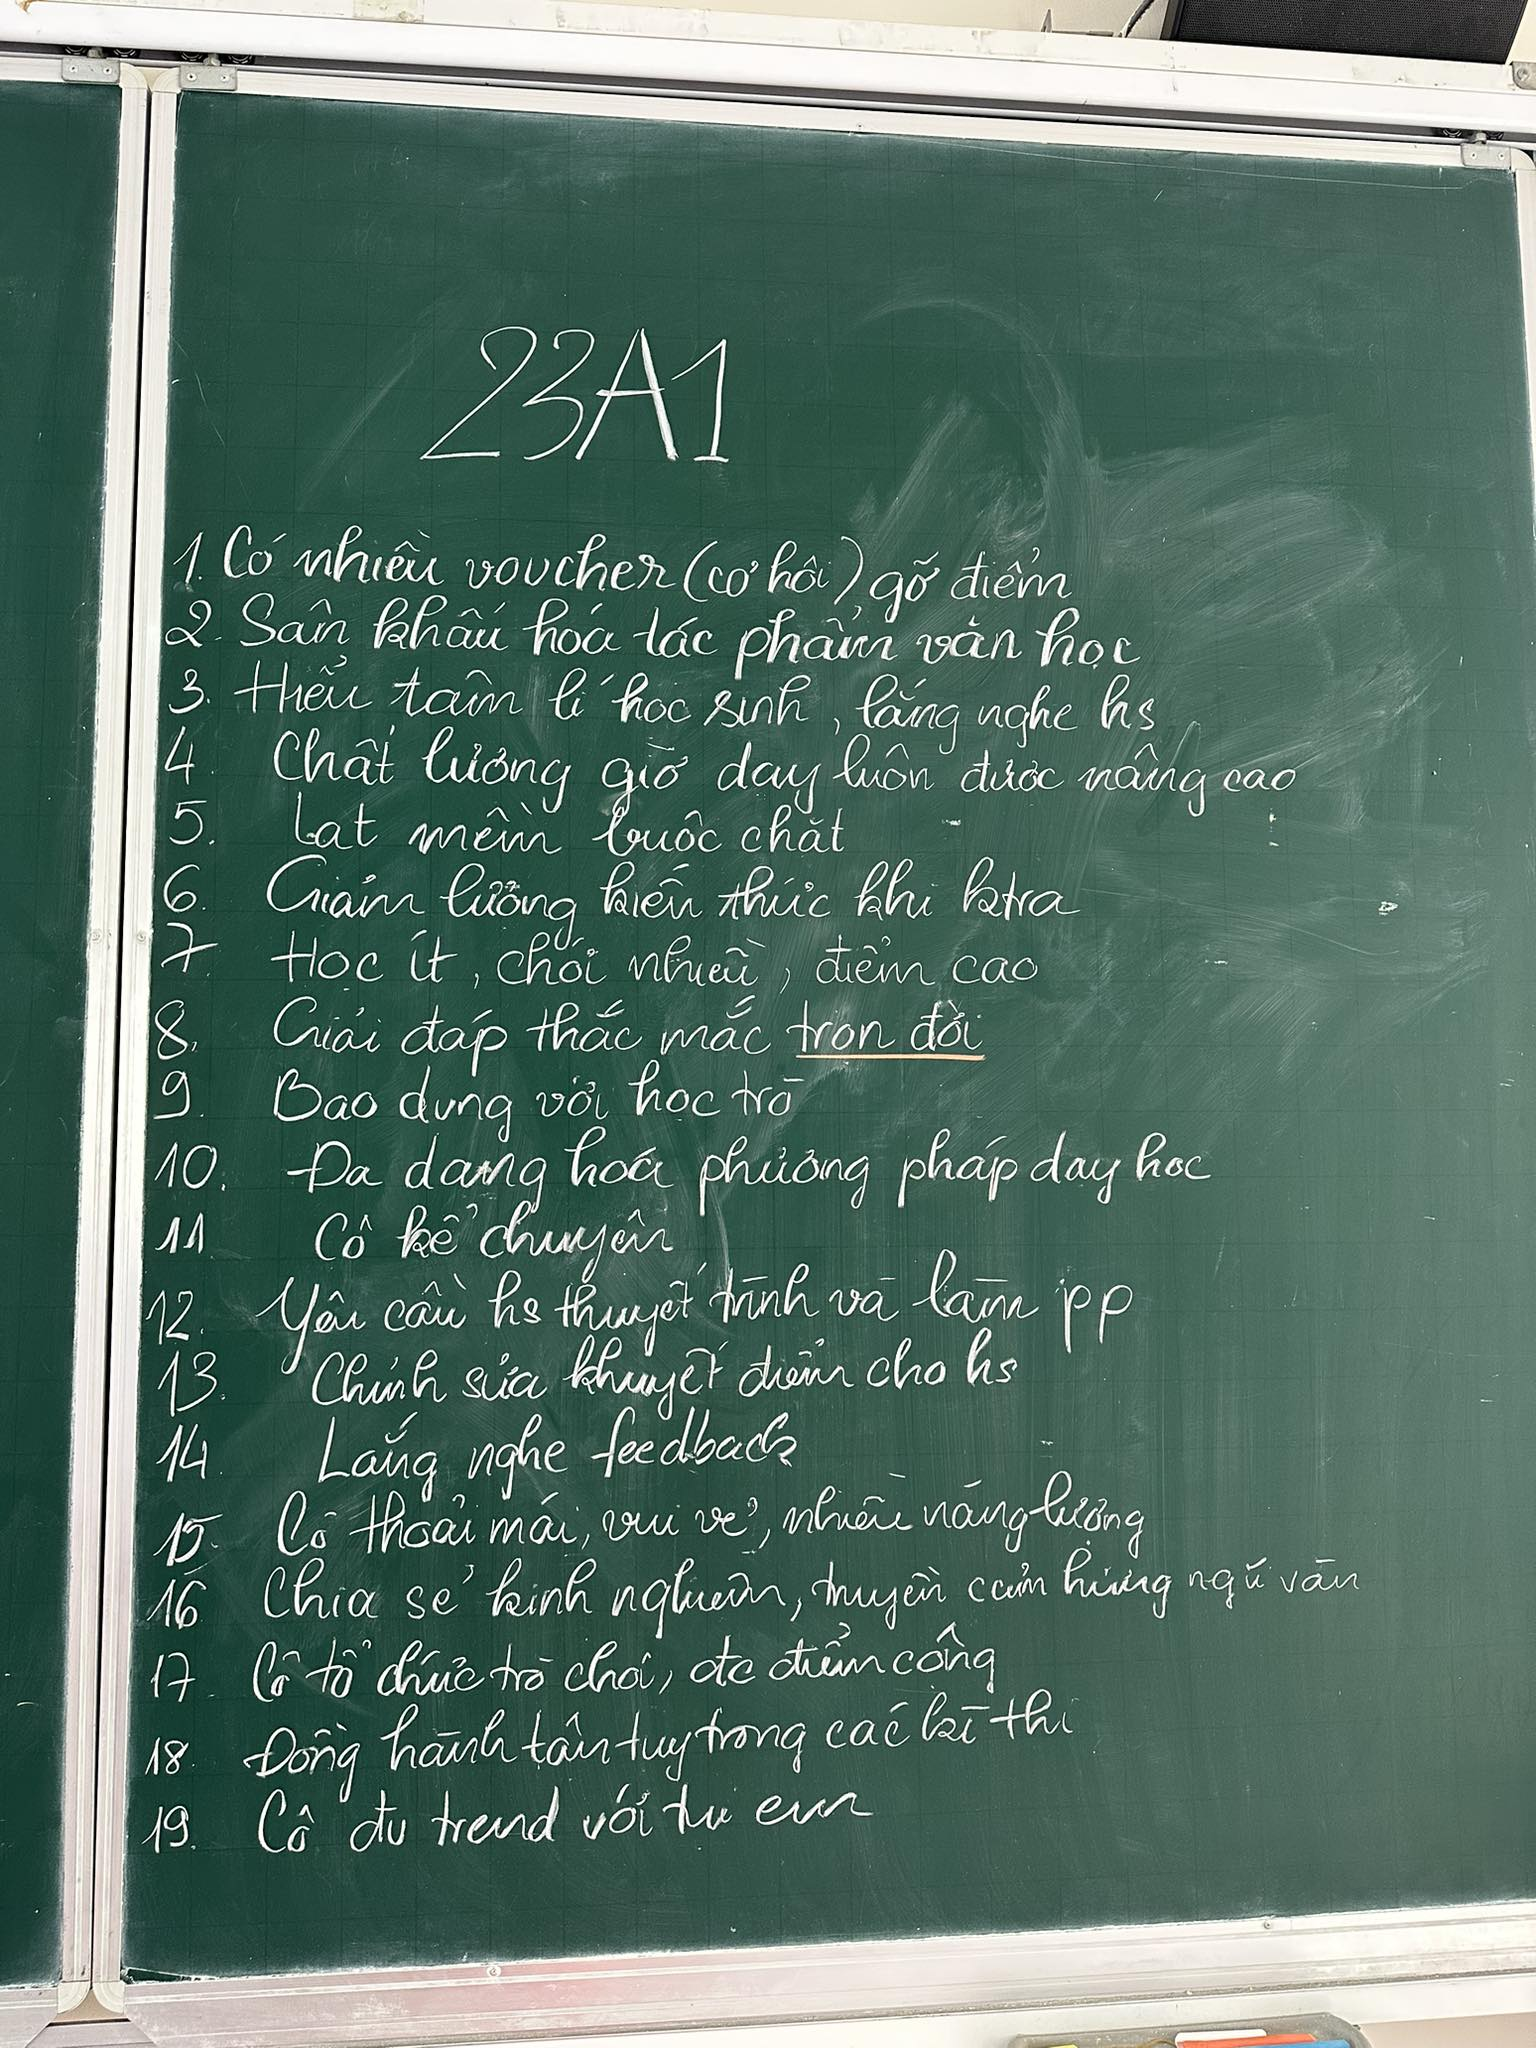 23A1
1. Có nhiều voucher (cơ hội) gỡ điểm
2. Sân khấu hoá tác phẩm văn học
3. Hiểu tâm lí học sinh, lắng nghe hs
4. Chất lượng giờ dạy luôn được nâng cao
5. Lạt mềm buộc chặt
6. Giảm lượng kiến thức khi ktra
7. Học ít, chơi nhiều, điểm cao
8. Giải đáp thắc mắc trọn đời
9. Bao dung với học trò
10. Đa dạng hoá phương pháp dạy học
11. Cô kể chuyện
12. Yêu cầu hs thuyết trình và làm pp
13. Chỉnh sửa khuyết điểm cho hs
14. Lắng nghe feedback
15. Cô thoải mái, vui vẻ, nhiều năng lượng
16. Chia sẻ kinh nghiệm, truyền cảm hứng ngữ văn
17. Cô tổ chức trò chơi, đc điểm cộng
18. Đồng hành tận tuỵ trong các kì thi
19. Cô đu trend với tụi em